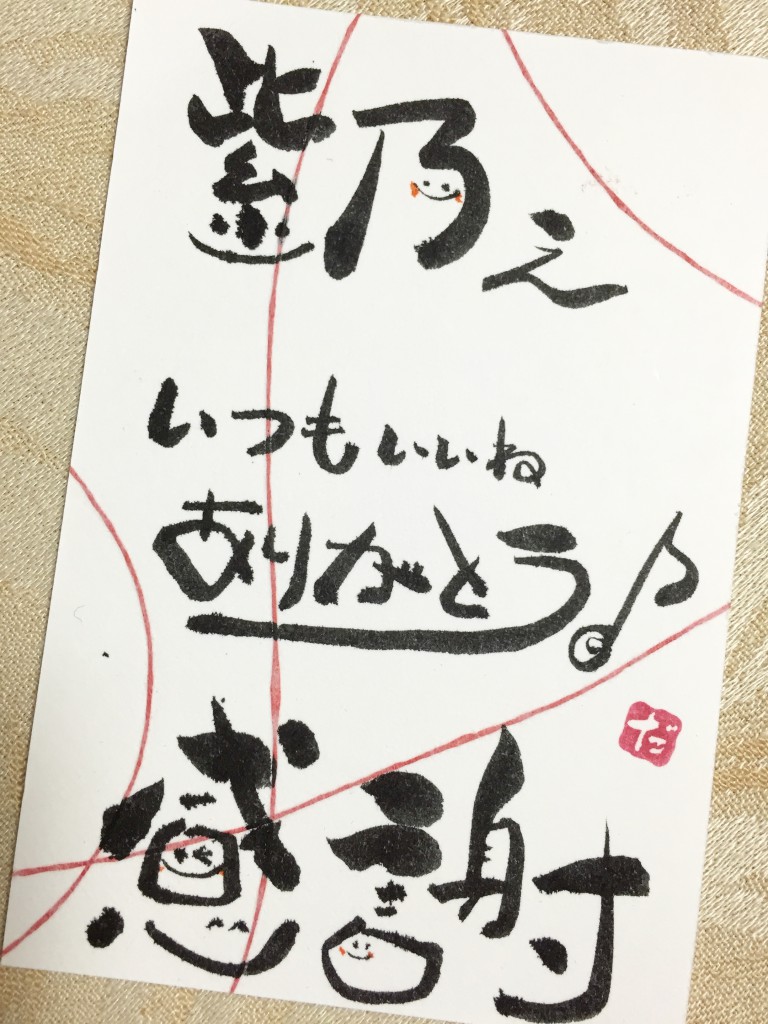 紫乃え
いつもいいね
ありがとう♪
だ
感謝